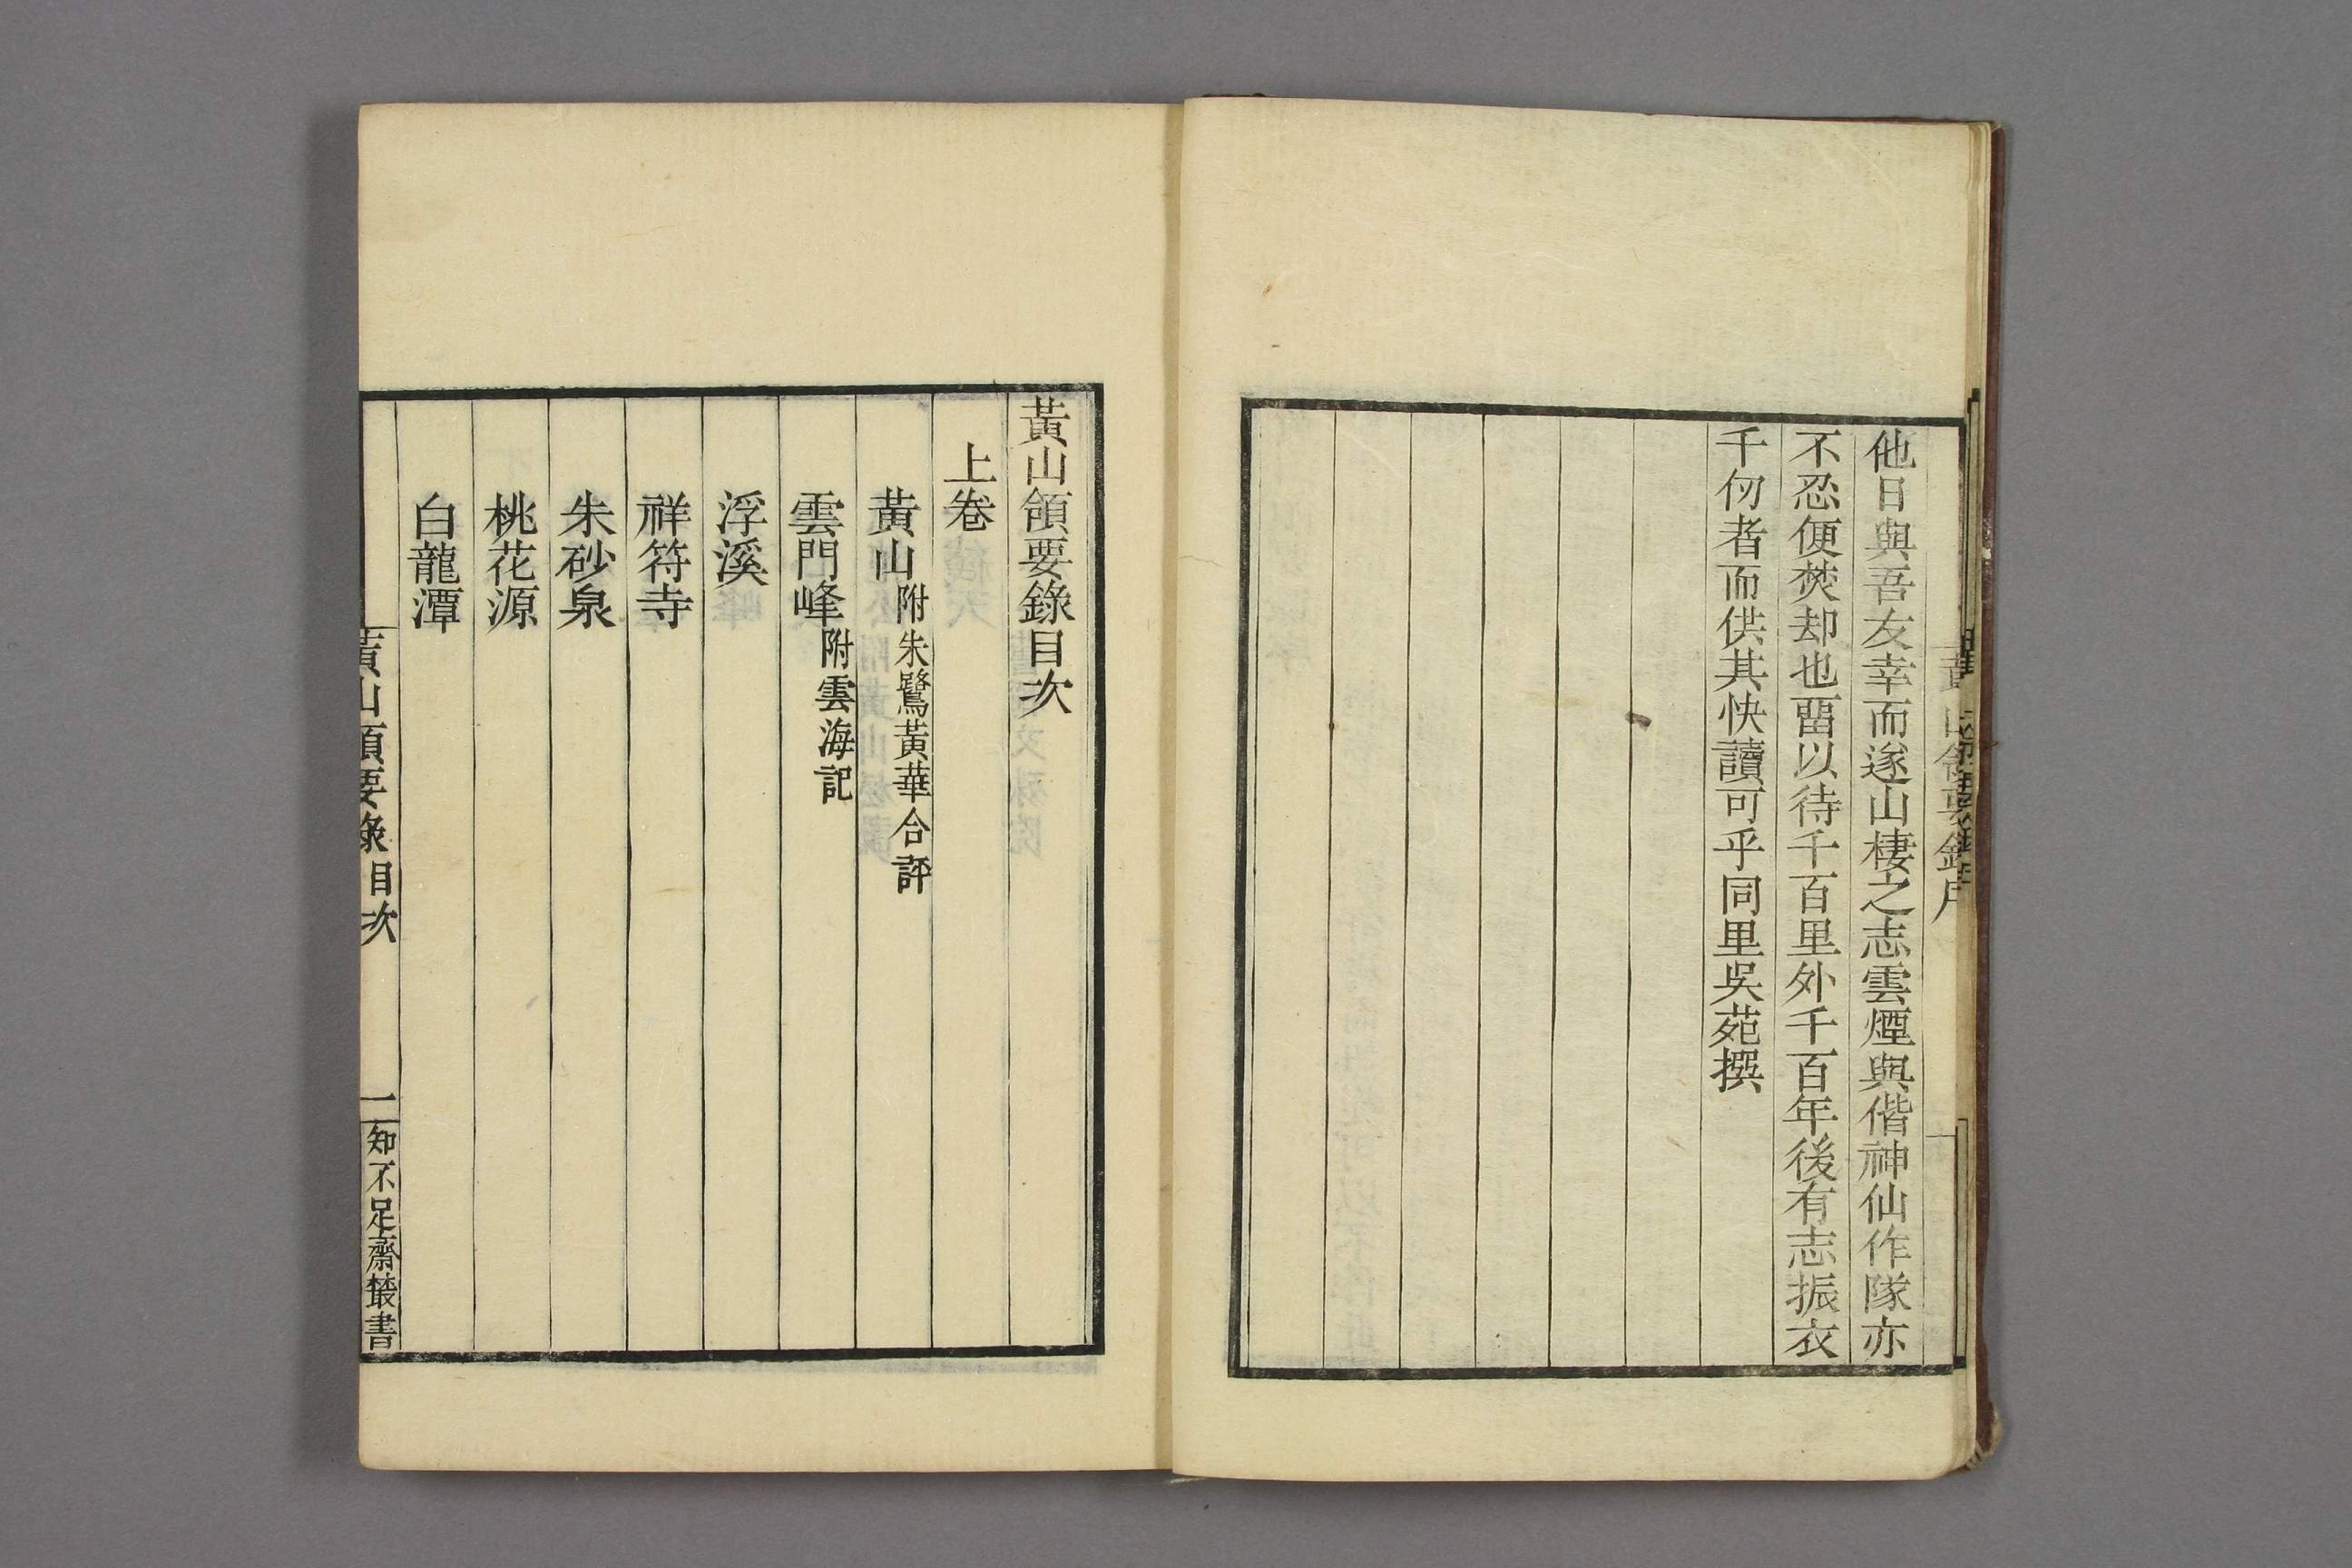 他日與吾友幸而遂山棲之志雲煙與偕神仙作隊亦
不忍便焚却也畱以待千百里外千百年後有志振衣
千仞者而供其快讀可乎同里吳苑撰
黃山領要錄目次
上卷
黃山附朱鷺黃華合評
雲門峰附雲海記
浮溪
祥符寺
朱砂泉
桃花源
白龍潭
黃山領要錄目次 一 知不足齋叢書